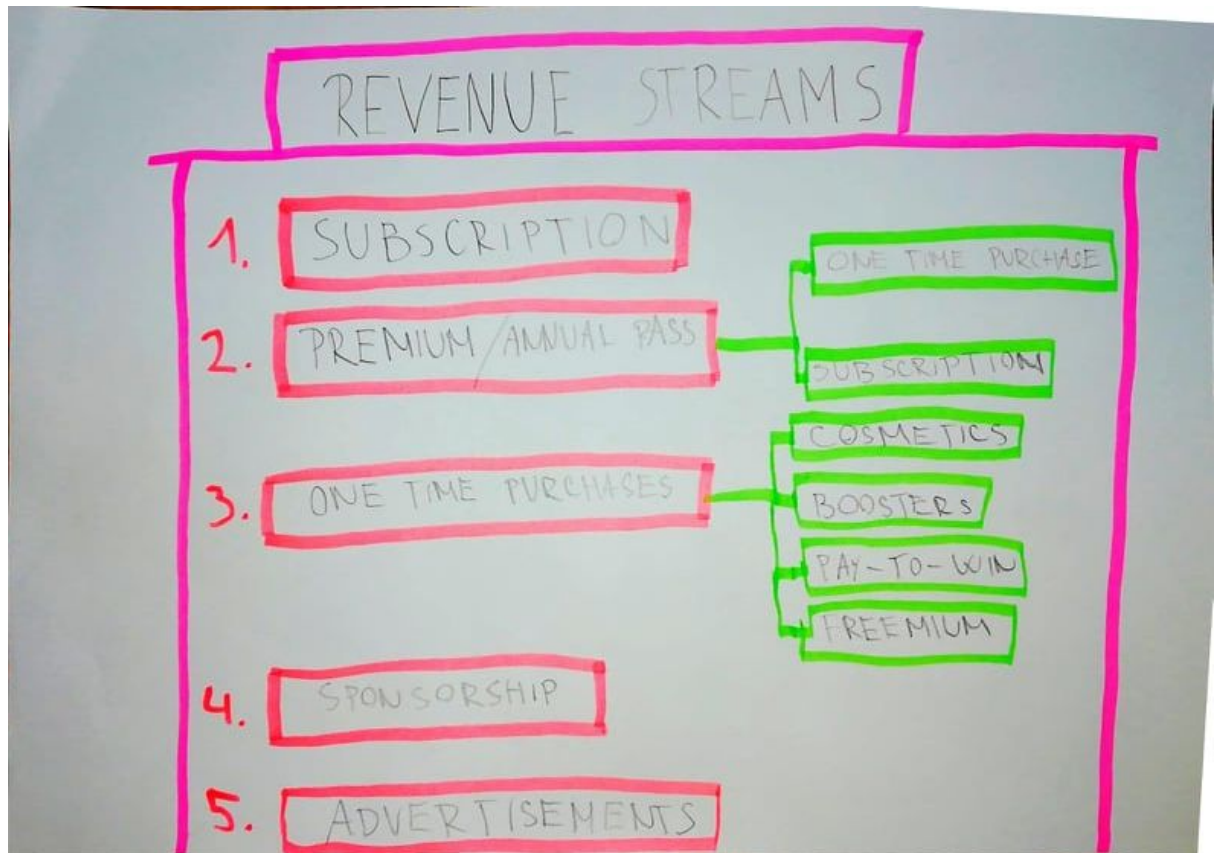 REVENUE STREAMS
1. SUBSCRIPTION
2. PREMIUM/ANNUAL PASS
ONE TIME PURCHASE
SUBSCRIPTION
3. ONE TIME PURCHASES
COSMETICS
BOOSTERS
PAY-TO-WIN
FREEMIUM
4. SPONSORSHIP
5. ADVERTISEMENTS